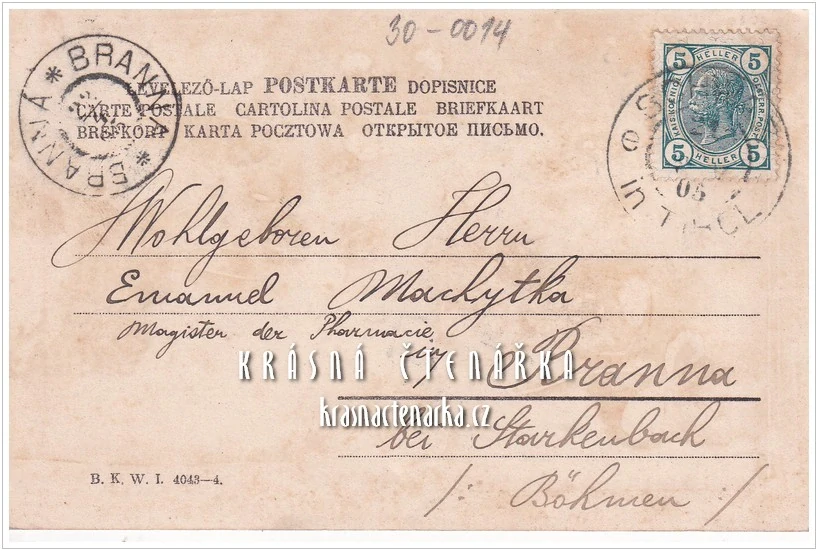 30-0014
BRANNA * BRANNÁ *
LEVELEZŐ-LAP POSTKARTE DOPISNICE
CARTE POSTALE CARTOLINA POSTALE BRIEFKAART
BREFKORT KARTA POCZTOWA ОТКРЫТОЕ ПИСЬМО.
5 HELLER 5
KAIS. KÖNIGL. OESTERR. POST.
5 HELLER 5
05
Wohlgeboren Herrn
Emanuel Machytka
Magister der Pharmacie
in Branna
KRÁSNÁ ČTENÁŘKA
krasnactenarka.cz
bei Starkenbach
/: Böhmen :/
B. K. W. I. 4043-4.